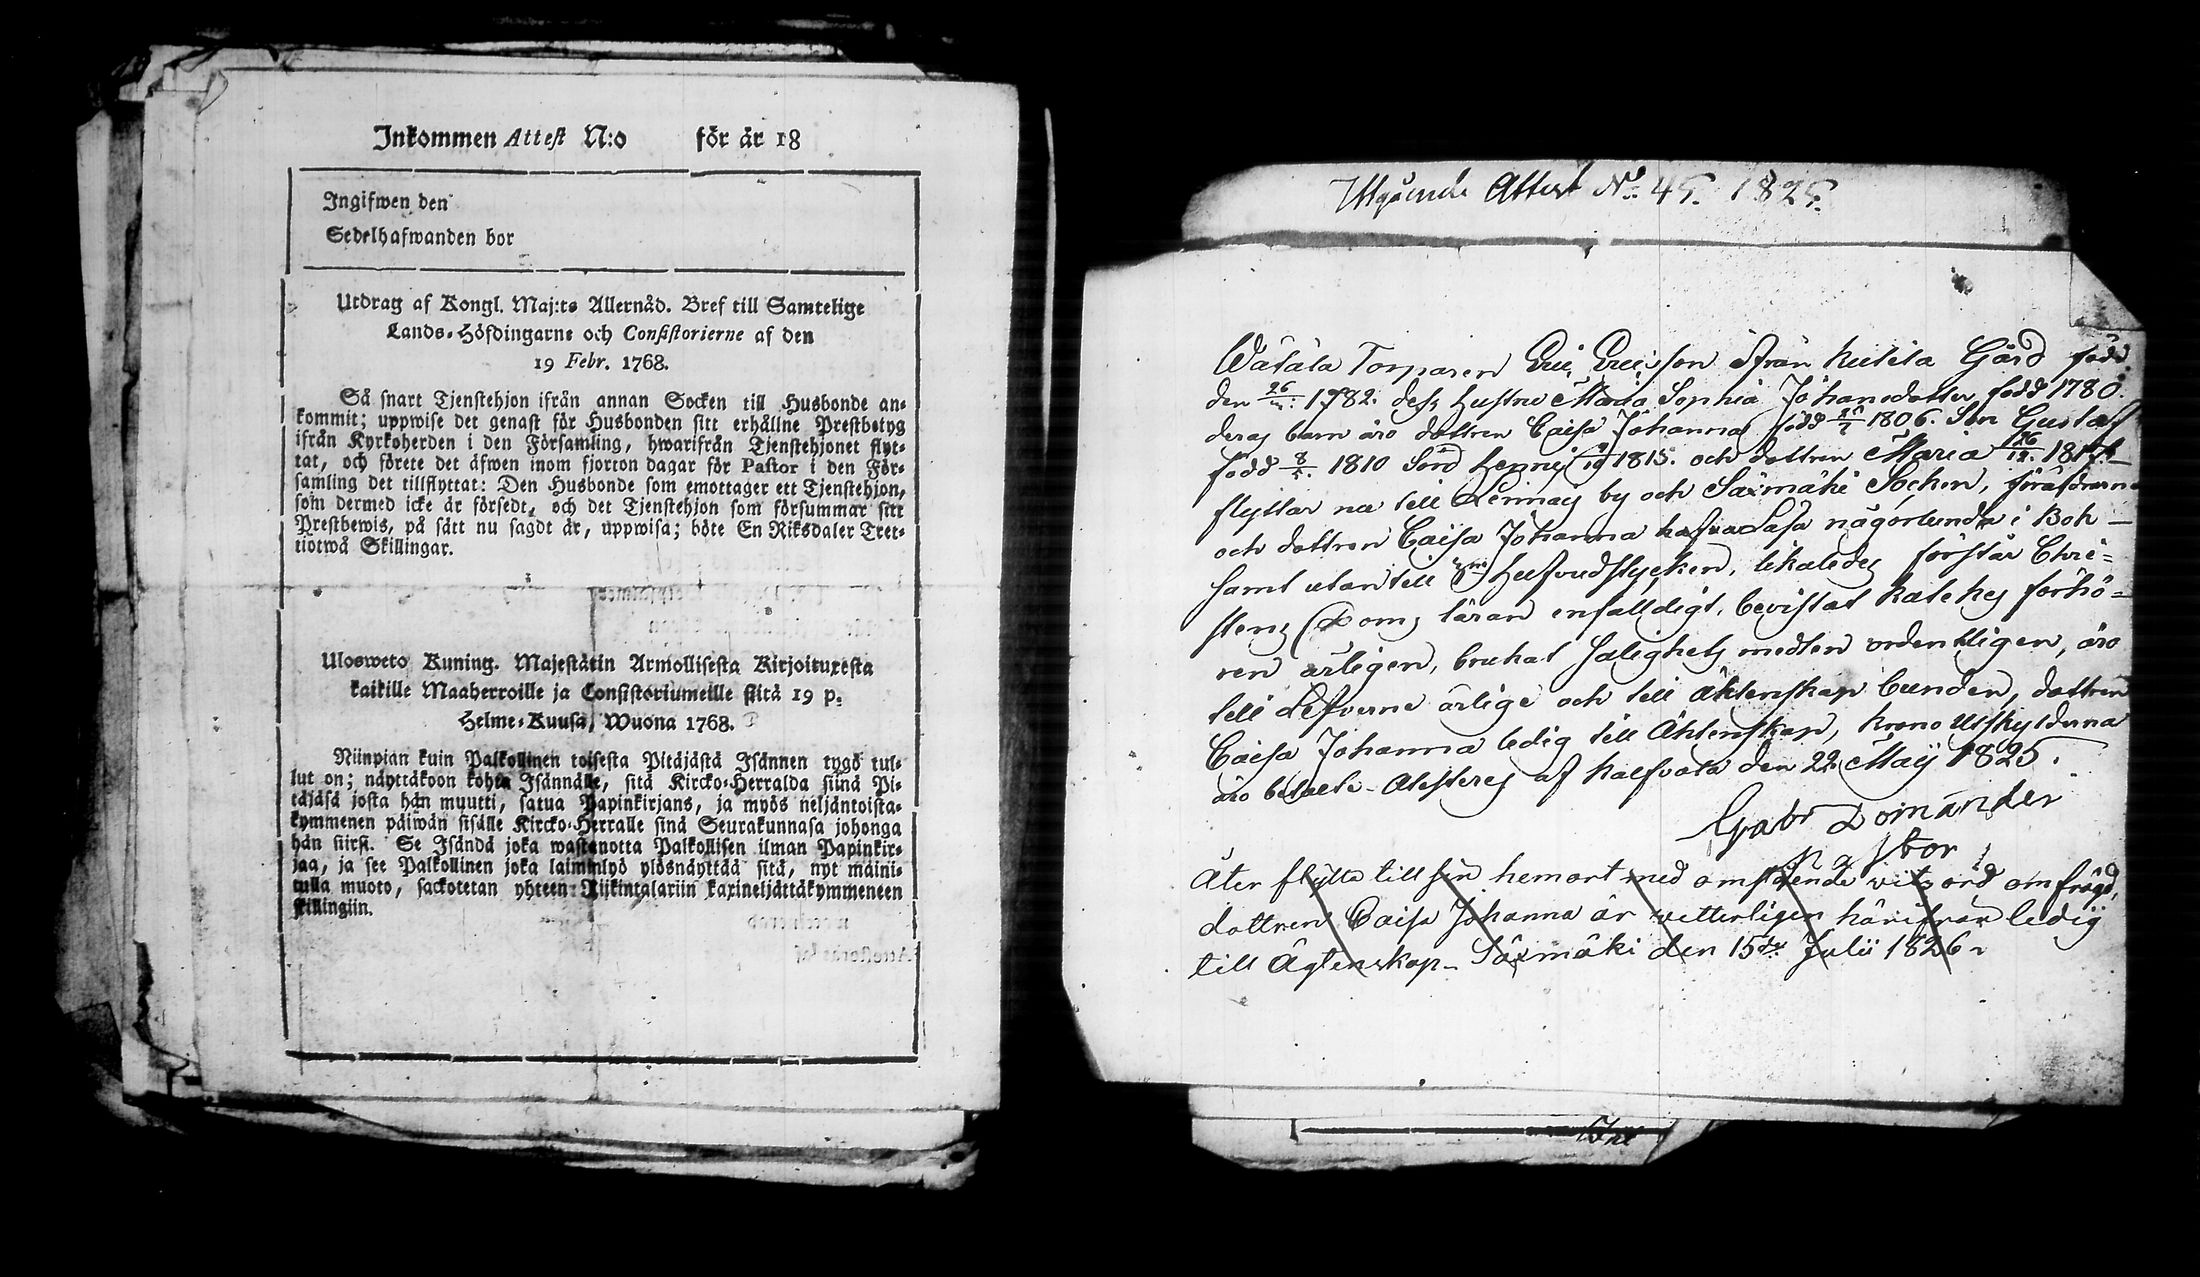 Inkommen Attest N:o för år 18
Ingifwen den
Sedelhafwanden bor
Utdrag af Kongl. Maj:ts Allernåd. Bref till Samtelige
Lands-Höfdingarne och Consistorierne af den
19 Febr. 1768.
Så snart Tjenstehjon ifrån annan Socken till Husbonde an-
kommit; uppwise det genast för Husbonden sitt erhållne Prestbetyg
ifrån Kyrkoherden i den Församling, hwarifrån Tjenstehjonet flyt-
tat, och förete det äfwen inom fjorton dagar för Pastor i den För-
samling det tillflyttat: Den Husbonde som emottager ett Tjenstehjon,
som dermed icke är försedt, och det Tjenstehjon som försummar sitt
Prestbewis, på sätt nu sagdt är, uppwisa; böte En Riksdaler Tret-
tiotwå Skillingar.
Ulosweto Kuning. Majestätin Armollisesta Kirjoituxesta
kaikille Maaherroille ja Consistoriumeille siitä 19 p.
Helme-Kuusa, Wuona 1768.
Niinpian kuin Palkollinen toisesta Pitäjästä Isännen tygö tul-
lut on; näyttäkoon kohta Isännälle, sitä Kircko-Herralda siinä Pi-
täjäsä josta hän muutti, saatua Papinkirjans, ja myös neljäntoista-
kymmenen päiwän sisälle Kircko-Herralle sinä Seurakunnasa johonga
hän siirsi. Se Isändä joka wastanotta Palkollisen ilman Papinkir-
jaa, ja see Palkollinen joka laiminlyö ylösnäyttää sitä, nyt mäini-
tulla muoto, sackotetan yhteen Riikintalariin kaxineljättäkymmeneen
skillingiin.
Utgående Attest No 45. 1825.
Wätälä Torparen Eric Ericsson ifrån Gård född
den 26 1782. dess hustru Maria Sophia Johansdotter född 1780.
deras barn äro dottren Caisa Johanna född 1806. Son Gustaf
född 8 1810 Son 1815. och dottren Maria 26
flyttar nu till by och Säxmäki Sochen, föräldrarna
och dottren Caisa Johanna hafva Läsa någorlunda i Bok
samt utantill hufvudstycken, likaledes förstår Chri-
stendoms läran enfalldigt, bevistat katekes förhö-
ren årligen, brukat Salighets medlen ordentligen, äro
till Lefverne ärlige och till äktenskap bunden, dottren
Caisa Johanna ledig till Äktenskap, krono utskylderna
äro betalte. Atesteres af Kalfvola den 22 Maij 1825.
Gabr Domander
Pastor
Åter flytta till sin hemort med omstående vitsord om frägd,
dottren Caisa Johanna är vetterligen härifrån ledig
till Ägtenskap. Säxmäki den 15de Julii 1826